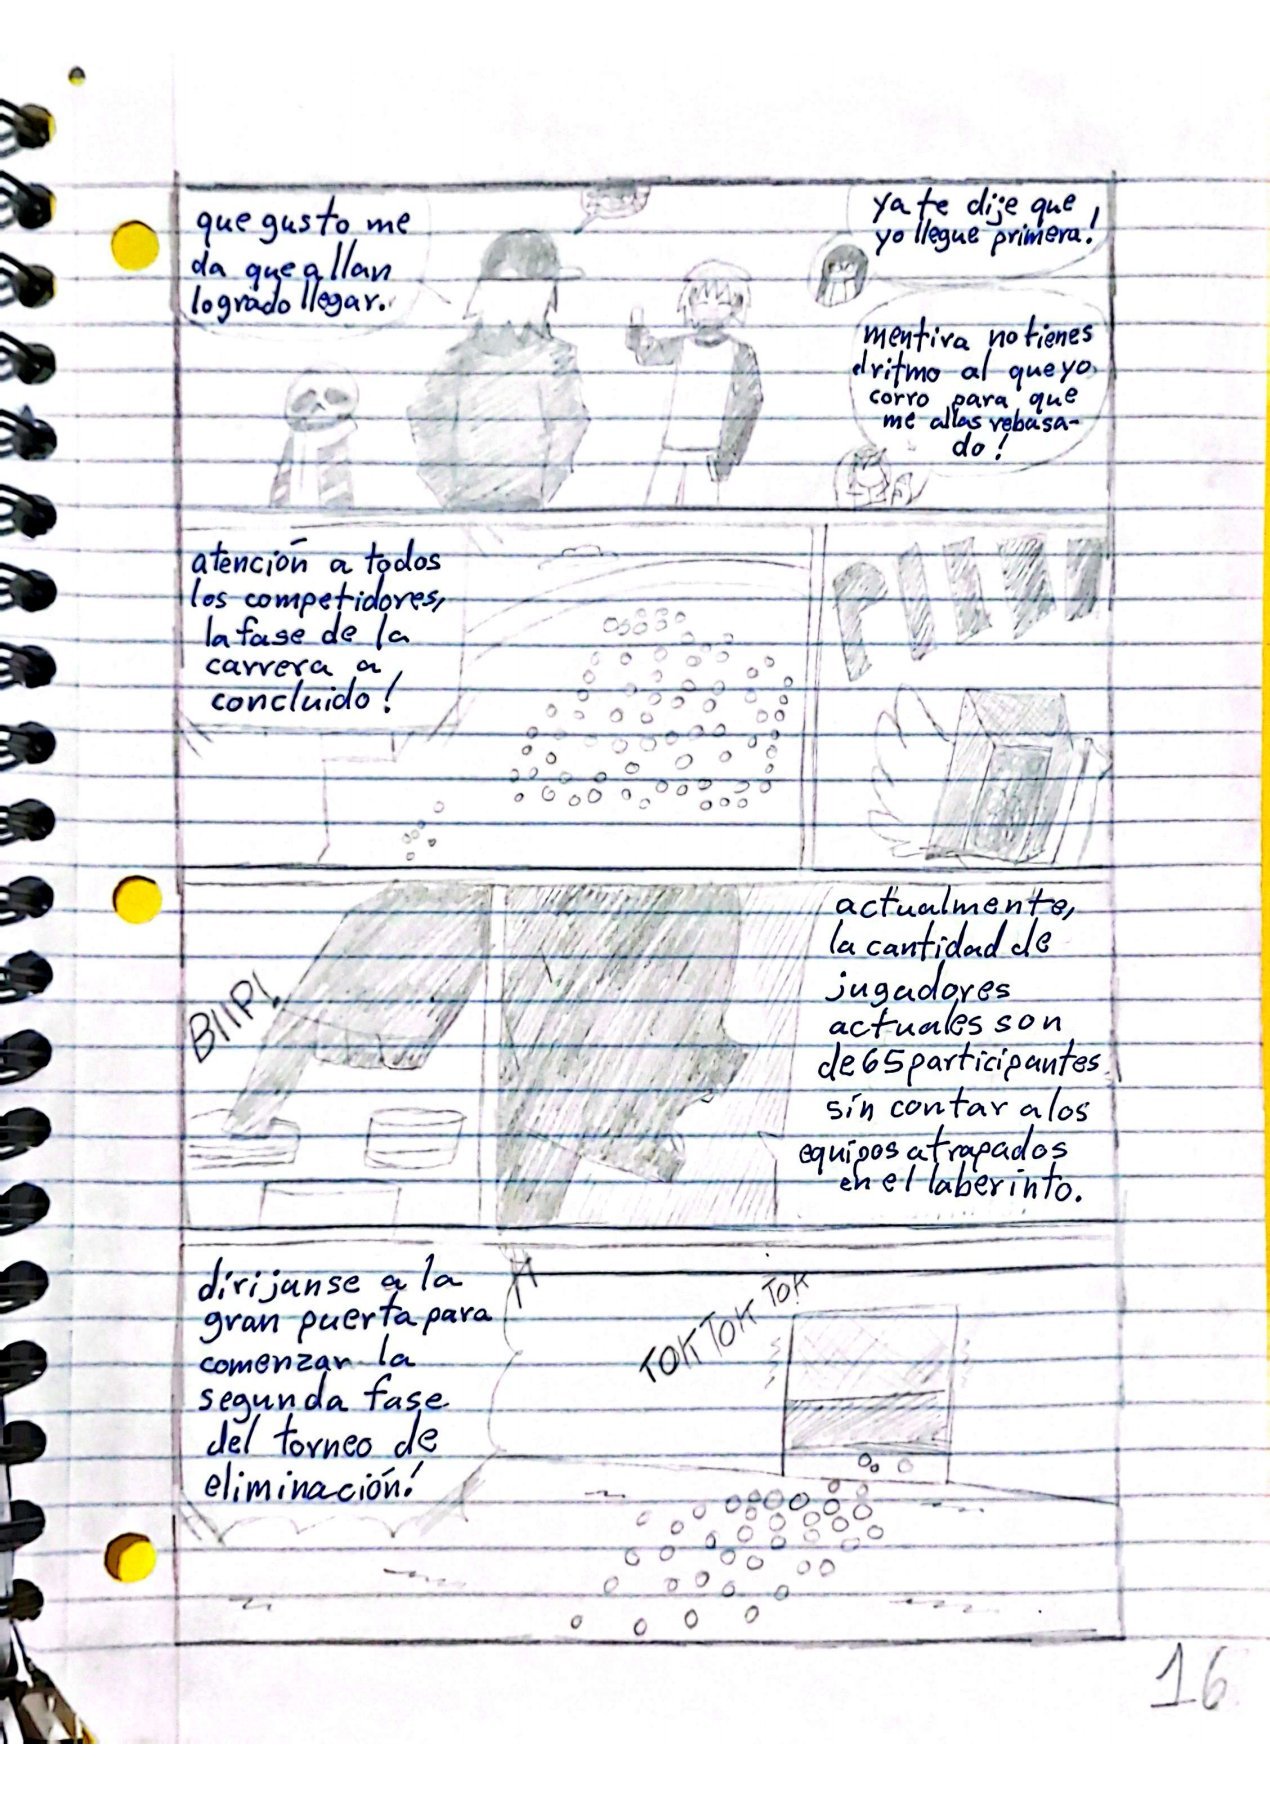 que gusto me
da que allan
logrado llegar.
ya te dije que
yo llegue primera!
mentira no tienes
el ritmo al que yo
corro para que
me allas rebasa-
do!
atención a todos
los competidores,
la fase de la
carrera a
concluido!
BIIP!
actualmente,
la cantidad de
jugadores
actuales son
de 65 participantes
sín contar a los
equipos atrapados
en el laberinto.
dirijanse a la
gran puerta para
comenzar la
segunda fase
del torneo de
eliminación!
TOK TOK TOK
16